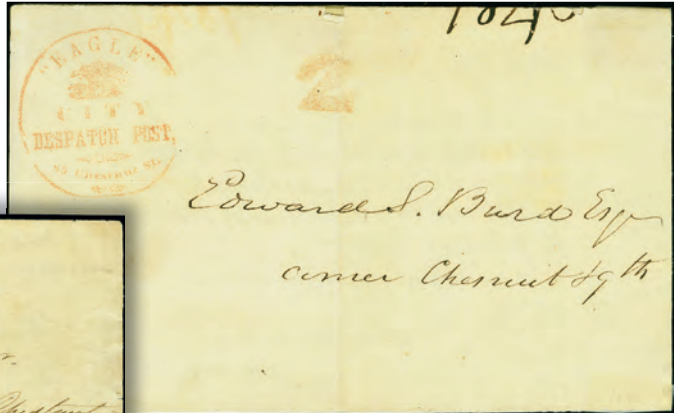 184
"EAGLE"
2
CITY
DESPATCH POST,
80 CHESNUT ST.
Edward S. Burd Esqr
corner Chesnut & 9th
Chestnut